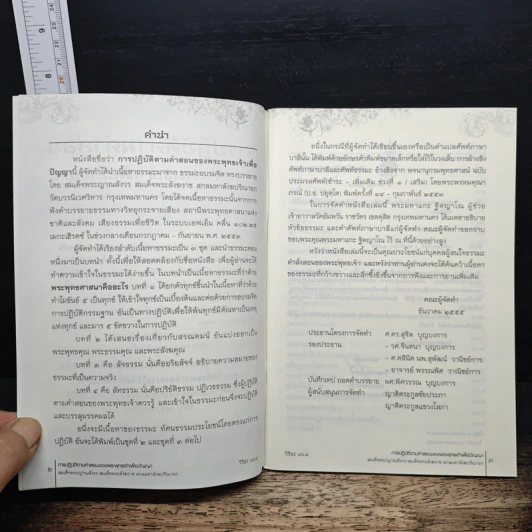 คำนำ
หนังสือชื่อว่า การปฏิบัติตามคำสอนของพระพุทธเจ้าเพื่อ
ปัญญานี้ ผู้จัดทำได้นำเนื้อหาธรรมะมาจาก ธรรมะอบรมจิต ทรงบรรยาย
โดย สมเด็จพระญาณสังวร สมเด็จพระสังฆราช สกลมหาสังฆปริณายก
วัดบวรนิเวศวิหาร กรุงเทพมหานคร โดยได้จดเนื้อหาธรรมะนั้นจากการ
ฟังคำบรรยายธรรมทางวิทยุกระจายเสียง สถานีพระพุทธศาสนาแห่ง
ชาติและสังคม เสียงธรรมเพื่อชีวิต ในระบบเอฟเอ็ม คลื่น
เมกะเฮิรตซ์ ในช่วงกลางเดือนกรกฎาคม - กันยายน พ.ศ.
ผู้จัดทำได้เรียงลำดับเนื้อหาธรรมะเป็น ๓ ชุด และนำธรรมะตอน
หนึ่งมาเป็นบทนำ ทั้งนี้เพื่อให้สอดคล้องกับชื่อหนังสือ เพื่อผู้อ่านจะได้
ทำความเข้าใจในธรรมะได้ง่ายขึ้น ในบทนำเป็นเนื้อหาธรรมะที่ว่าด้วย
พระพุทธศาสนาคืออะไร บทที่ ๑ ได้ยกตัวทุกข์ขึ้นนำในเนื้อหาที่ว่าด้วย
ทำไมขันธ์ ๕ เป็นทุกข์ ให้เข้าใจทุกข์เป็นเบื้องต้นและต่อด้วยการอบรมจิต
การปฏิบัติกรรมฐาน อันเป็นทางปฏิบัติเพื่อให้พ้นทุกข์มีต้นหาเป็นเหตุ
แห่งทุกข์ และมาร ๕ ขัดขวางในการปฏิบัติ
บทที่ ๒ ได้เสนอเรื่องเกี่ยวกับสรณคมน์ อันแบ่งออกเป็น
พระพุทธคุณ พระธรรมคุณ และพระสังฆคุณ
บทที่ ๓ คือ สัจธรรม นั่นคืออริยสัจจ์ อธิบายความหมายของ
ธรรมะที่เป็นความจริง
บทที่ ๔ คือ สัทธรรม นั่นคือปริยัติธรรม ปฏิเวธธรรม ซึ่งผู้ปฏิบัติ
ตามคำสอนของพระพุทธเจ้าควรรู้ และเข้าใจในธรรมะก่อนจึงจะปฏิบัติ
และบรรลุมรรคผลได้
อนึ่งจะมีเนื้อหาของธรรมะ ทัศนธรรมประโยชน์โดยตรงแก่การ
ปฏิบัติ อันจะได้พิมพ์เป็นชุดที่ ๒ และชุดที่ ๓ ต่อไป
๒
การปฏิบัติตามคำสอนของพระพุทธเจ้าเพื่อปัญญา
สมเด็จพระญาณสังวร สมเด็จพระสังฆราช สกลมหาสังฆปริณายก
อนึ่งในกรณีที่ผู้จัดทำได้เขียนขึ้นเองหรือเป็นคำแปลศัพท์ภาษา
บาลีนั้น ได้พิมพ์ด้วยอักษรตัวพิมพ์ขนาดเล็กหรือใส่ไว้ในวงเล็บ การอ้างอิง
ศัพท์ภาษาบาลีและศัพท์ธรรมะ อ้างอิงจาก พจนานุกรมพุทธศาสน์ ฉบับ
ประมวลศัพท์(ชำระ - เพิ่มเติม ช่วงที่ ๑ / เสริม) โดยพระพรหมคุณา
ภรณ์ (ป.อ. ปยุตฺโต) พิมพ์ครั้งที่ - กุมภาพันธ์
ในการจัดทำหนังสือเล่มนี้ พระมหาแกะ ฐิตญาโณ ผู้ช่วย
เจ้าอาวาสวัดอัมพวัน ราชวัตร เขตดุสิต กรุงเทพมหานคร ได้เมตตาอธิบาย
หัวข้อธรรมะ และคำศัพท์ภาษาบาลีแก่ผู้จัดทำ คณะผู้จัดทำขอกราบ
ขอบพระคุณพระมหาแกะ ฐิตญาโณ ไว้ ณ ที่นี้ด้วยอย่างสูง
หวังว่าหนังสือเล่มนี้จะเป็นคุณประโยชน์แก่บุคคลผู้สนใจธรรมะ
คำสั่งสอนของพระพุทธเจ้า และหวังว่าท่านผู้อ่านคงจะได้ค้นคว้าเนื้อหา
ของธรรมะที่กว้างขวางและลึกซึ้งยิ่งขึ้นจากการฟังและการอ่านเพิ่มเติม
คณะผู้จัดทำ
ธันวาคม ๒๕๕๕
ประธานโครงการจัดทำ ศ.ดร.สุจิต บุญบงการ
รองประธาน - รศ.จินตนา บุญบงการ
- ศ.คลินิก นพ.สุพัฒน์ วาณิชย์การ
- อาจารย์ พรรณพิศ วาณิชย์การ
บันทึกเทป ถอดคำบรรยาย ผศ.พิศวรรณ บุญบงการ
ผู้สนับสนุนการจัดทำ ญาติตระกูลชัยประภา
ญาติตระกูลแซ่วงโสภา
การปฏิบัติตามคำสอนของพระพุทธเจ้าเพื่อปัญญา
สมเด็จพระญาณสังวร สมเด็จพระสังฆราช สกลมหาสังฆปริณายก
๓